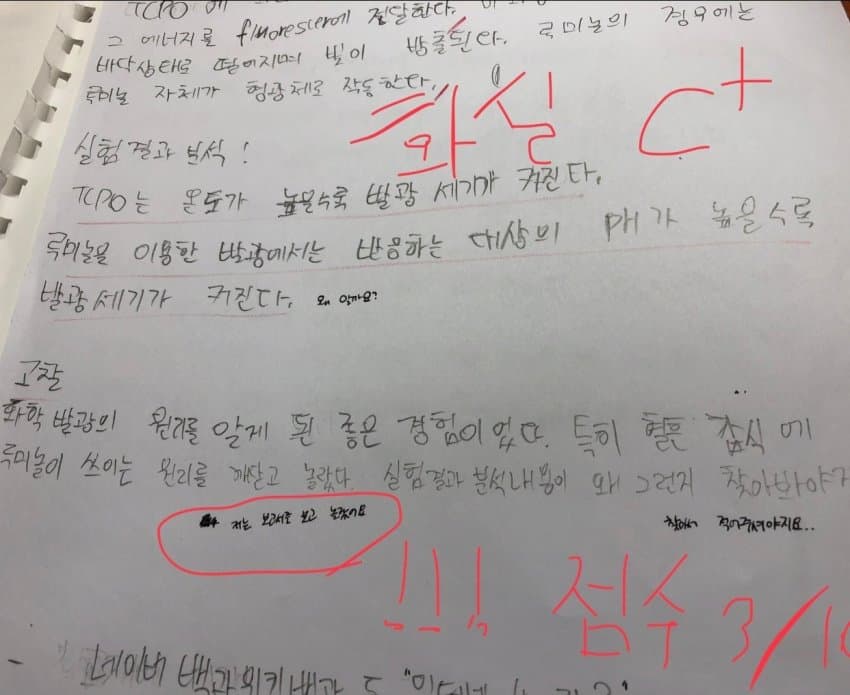 TCPO에
fluorescer에 전달한다.
그 에너지를
바닥상태로 떨어지며 빛이 방출된다. 루미놀의 경우에는
루미놀 자체가 형광체로 작동한다.
화실 C+
실험결과 분석!
TCPO는 온도가 높을수록 발광 세기가 커진다.
루미놀을 이용한 발광에서는 반응하는 대상의 pH가 높을수록
발광세기가 커진다. 왜 일까요?
고찰
화학 발광의 원리를 알게 된 좋은 경험이었다. 특히 혈흔 감식에
루미놀이 쓰이는 원리를 깨닫고 놀랐다. 실험결과 분석내용이 왜 그런지 찾아봐야
저는 보고서를 보고 놀랐어요
찾아서 적어주셔야지요..
!!! 점수 3/10
- 네이버 백과 위키백과